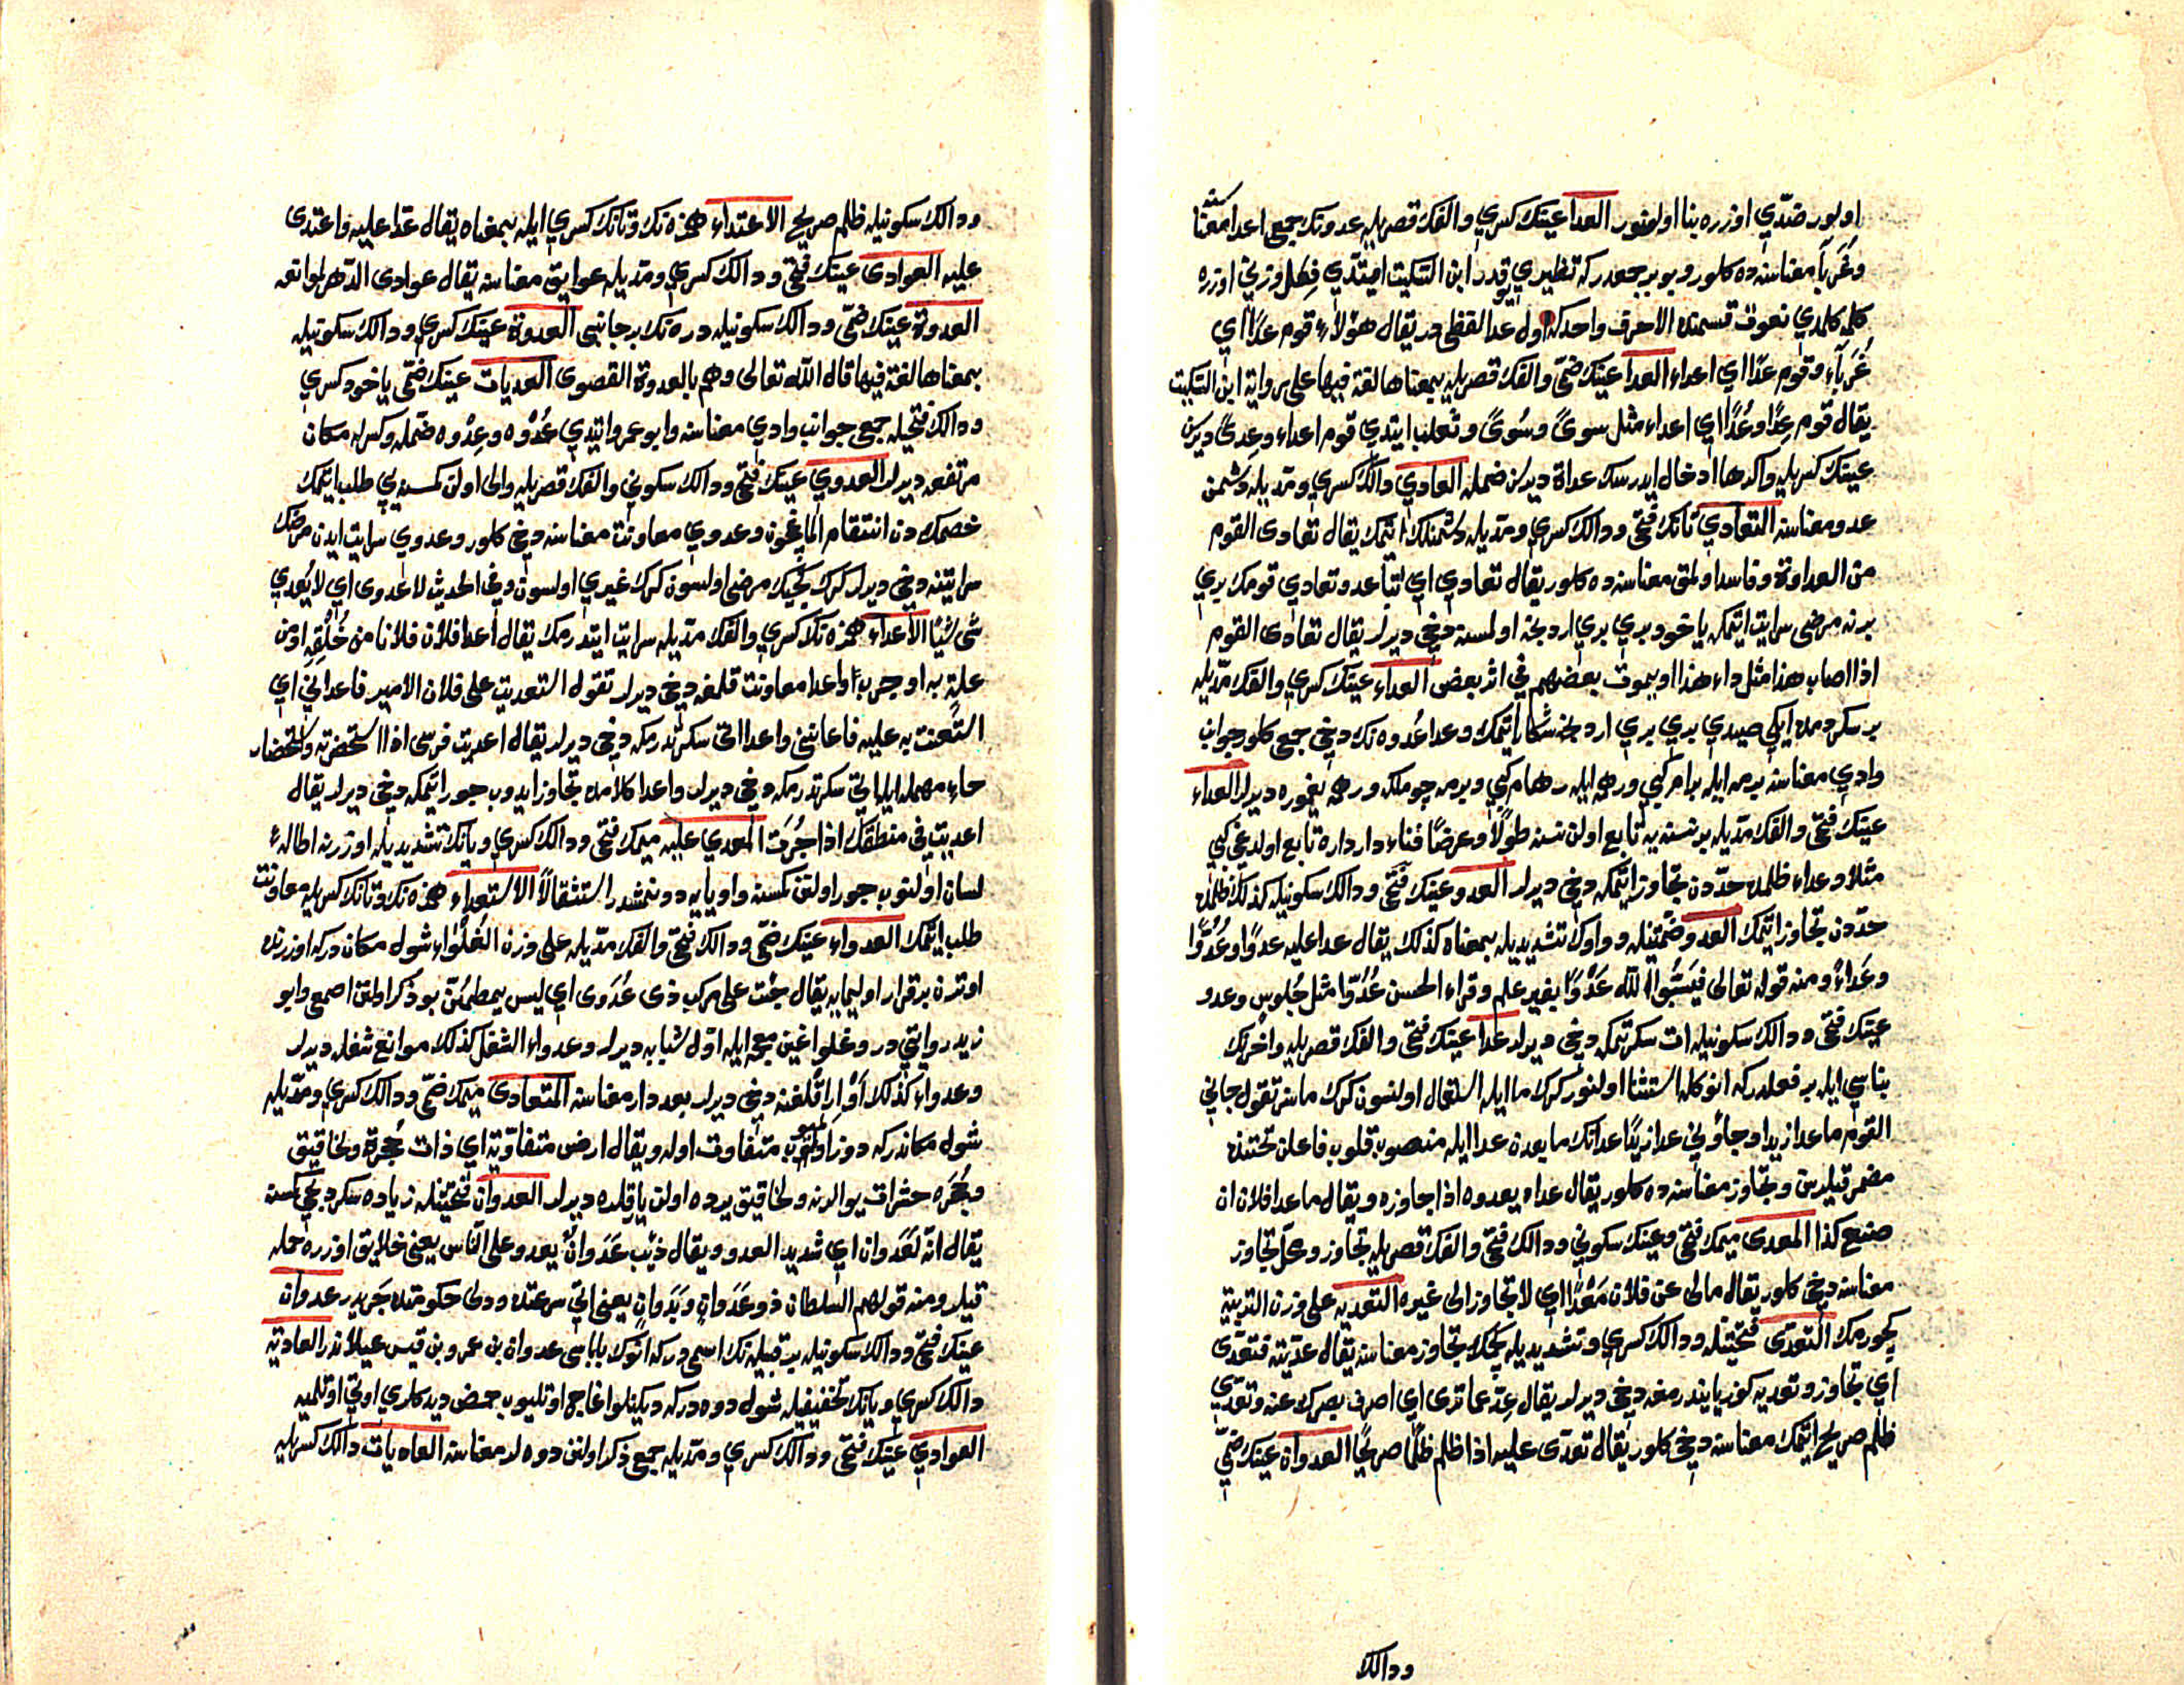 اولور ضدّي اوزره بنا اولنور العدا عينك كسري والفك قصريله عدونك جمع اعدا معناسنه
وغُرَبآ معناسنده كلور و بو بر جمعدر كه نظيري يوقدر ابن السّكيت ايتدي فِعَل وزني اوزره
كله كلمدي نعوت قسمنده الا حرف واحد كه اول عدا لفظي در يقال هؤلاء قوم عدًا اي
غُرَبآء وقوم عدًا اي اعداء العدا عينك ضمّي والفك قصريله بمعناها لغة فيها على رواية ابن السّكيت
يقال قوم عِدًا وعُدًا اي اعداء مثل سوىً وسُوىً وثعلب ايتدي قوم اعداء وعِدىً ديرلر
عينك كسريله واكر ها ادخال ايدرسك عداة ديرلر ضمله العادي دالك كسري ومدّيله دشمن
عدو معناسنه التعادي تانك فتحي ودالك كسري ومدّيله دشمنلك ايتمك يقال تعادى القوم
من العداوة وفاسد اولمق معناسنده كلور يقال تعادي اي تباعد وتعادي قومك بري
برنه مرضى سرايت ايتمكه ياخود بري بري اردنجه اولمسنه دخي ديرلر يقال تعادى القوم
اذا اصاب هذا مثل داء هذا او يموت بعضهم في اثر بعض العداء عينك كسري والفك مدّيله
بر سكردمده ايكي صيدي بري بري اردنجه شكار ايتمك وعدا عُدوه نك دخي جمعي كلور جوانب
وادي معناسنه برمه ايله برام كبي ورهمه ايله رهام كبي وبرمه چوملك ورهمه يغموره ديرلر العداء
عينك فتحي والفك مدّيله بر نسنه يه تابع اولن نسنه طولًا وعرضًا فناء دار داره تابع اولدغي كبي
مثلا وعداء ظلمده حدّدن تجاوز ايتمكه دخي ديرلر العدو عينك فتحي ودالك سكونيله كذلك ظلمده
حدّدن تجاوز ايتمك العدو ضمّتينله وواوك تشديديله بمعناه كذلك يقال عدا عليه عدوًا وعُدُوًّا
وعَداءً ومنه قوله تعالى فيَسُبّوا الله عَدْوًا بغير علم وقراء الحسن عُدُوًّا مثل جُلوس وعدو
عينك فتحي ودالك سكونيله ات سكرتمكه دخي ديرلر عدا عينك فتحي والفك قصريله واخرنك
بناسي ايله بر فعلدر كه انوكله استثنا اولنور كرك ما ايله استعمال اولنسون كرك ماسز تقول جاني
القوم ما عدا زيدا وجاؤني عدا زيدًا عدانك مابعدن عدا ايله منصوب قلوب فاعلن تحتنده
مضمر قيلرسن وتجاوز معناسنده كلور يقال عداه يعدوه اذا جاوزه ويقال ما عدا فلان ان
صنع كذا المعدى ميمك فتحي وعينك سكوني ودالك فتحي والفك قصريله تجاوز ومحلّ تجاوز
معناسنه دخي كلور يقال مالى عن فلان مَعْدًا اي لا تجاوز الى غيره التعديه على وزن التربية
كچورمك التعدّى فتحتينله ودالك كسري وتشديديله كچمك تجاوز معناسنه يقال عدّيته فتعدّى
اي تجاوز وتعديه كوز يايندرمغه دخي ديرلر يقال عِدّ عما ترى اي اصرف بصرك عنه وتعدّي
ظلم صريح ايتمك معناسنه دخي كلور يقال تعدّى عليه اذا ظلم ظلمًا صريحًا العدوان عينك ضمّي
ودالك
ودالك سكونيله ظلم صريح الاعتداء همزه نك وتانك كسري ايله بمعناه يقال عدا عليه واعتدى
عليه العوادى عينك فتحي ودالك كسري ومدّيله عوايق معناسنه يقال عوادى الدّهر لموانعه
العدوة عينك ضمّي ودالك سكونيله دره نك بر جانبى العدوة عينك كسري ودالك سكونيله
بمعناها لغة فيها قال الله تعالى وهم بالعدوة القصوى العديات عينك ضمّي ياخود كسري
ودالك فتحيله جمع جوانب وادي معناسنه وابو عمرو ايتدي عُدْوه وعِدْوه ضمله وكسرله مكان
مرتفعه ديرلر العدوي عينك فتحي ودالك سكوني والفك قصريله والى اولن كمسنه يي طلب ايتمك
خصمكدن انتقام المغيچون وعدوي معاونت معناسنه دخي كلور وعدوي سرايت ايدن مرضك
سرايتنه دخي ديرلر كرك كجيك مرضى اولسون كرك غيري اولسون وفي الحديث لا عدوى اي لا يُعدي
شى شيًا الاعداء همزه نك كسري والفك مدّيله سرايت ايتدرمك يقال أعدا فلان فلانا من خُلُقِهِ او من
علةٍ به او جرب واعدا معاونت قلمغه دخي ديرلر تقول استعديت على فلان الامير فاعداني اي
استعنت به عليه فاعانني واعدا اتى سكرتدرمكه دخي ديرلر يقال اعديت فرسى اذا استحضرته واستحضار
حاء مهمله ايله اتي سكرتدرمكه دخي ديرلر واعدا كلامده تجاوز ايدوب جور ايتمكه دخي ديرلر يقال
اعديت في منطقك اذا جُرتَ المعدي عليه ميمك فتحي ودالك كسري ويانك تشديديله اوزرنه اطالۀ
لسان اولنوب جور اولنن كمسنه واو يايه دونمشدر استثقالًا الاستعداء همزه نك وتانك كسريله معاونت
طلب ايتمك العدواء عينك ضمّي ودالك فتحي والفك مدّيله على وزن الغُلَوَاء شول مكاندركه اوزرنده
اوترن برقرار اوليمايه يقال جئت على مركب ذى عُدَوى اي ليس بمطمئنّ بو ذكر اولنن اصمعى وابو
زيد روايتي در وغلوا غين معجمه ايله اوّل شبابه ديرلر وعدواء الشغل كذلك موانع شغله ديرلر
وعدواء كذلك دخي ديرلر بعد دار معناسنه المتعادى ميمك ضمّي ودالك كسري ومدّيله
شول مكاندركه دوز اولميوب متفاوت اوله ويقال ارض متفاوتة اي ذات جُحرة ولخاقيق
وجُحَره حشرات يوالرينه ولخاقيق يرده اولن يارقلره ديرلر العدوان فتحتينله زياده سكرديجي كمسنه
يقال انّه لعَدَوان اي شديد العدو ويقال ذئب عَدَوانٌ يعدو على النّاس يعنى خلايق اوزره حمله
قيلر ومنه قولهم السلطان ذو عَدَوانٍ وبَدَوانٍ يعنى سرعتده ودلى حكومتده جَريدر عدوان
عينك فتحي ودالك سكونيله بر قبيله نك اسمى دركه انوك باباسى عدوان بن عمرو بن قيس عيلاندر العادية
دالك كسري ويانك تخفيفيله شول دوه دركه ديكنلو اغاج اوتليوب حمض ديدكلري اوتي اوتلميه
العوادي عينك فتحي ودالك كسري ومدّيله جمع ذكر اولنن دوه لر معناسنه العاديات دالك كسريله